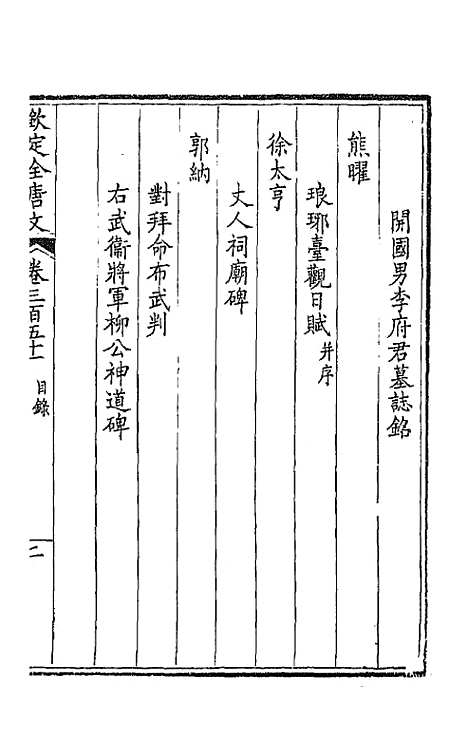 開國男李府君墓誌銘
熊曜
琅琊臺觀日賦并序
徐太亨
丈人祠廟碑
郭納
對拜命布武判
右武衞將軍柳公神道碑
欽定全唐文 卷三百五十一 目錄 二